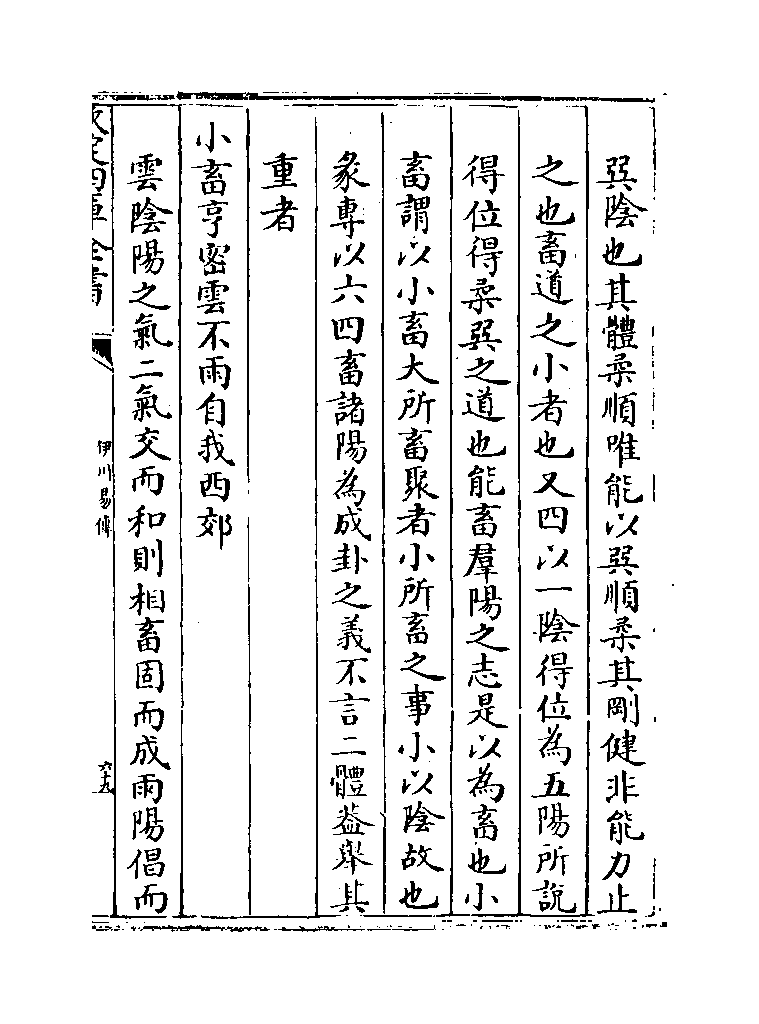 巽陰也其體柔順唯能以巽順柔其剛健非能力止
之也畜道之小者也又四以一陰得位為五陽所說
得位得柔巽之道也能畜羣陽之志是以為畜也小
畜謂以小畜大所畜聚者小所畜之事小以陰故也
彖專以六四畜諸陽為成卦之義不言二體葢舉其
重者
小畜亨密雲不雨自我西郊
雲陰陽之氣二氣交而和則相畜固而成雨陽倡而
欽定四庫全書
伊川易傳
六十五